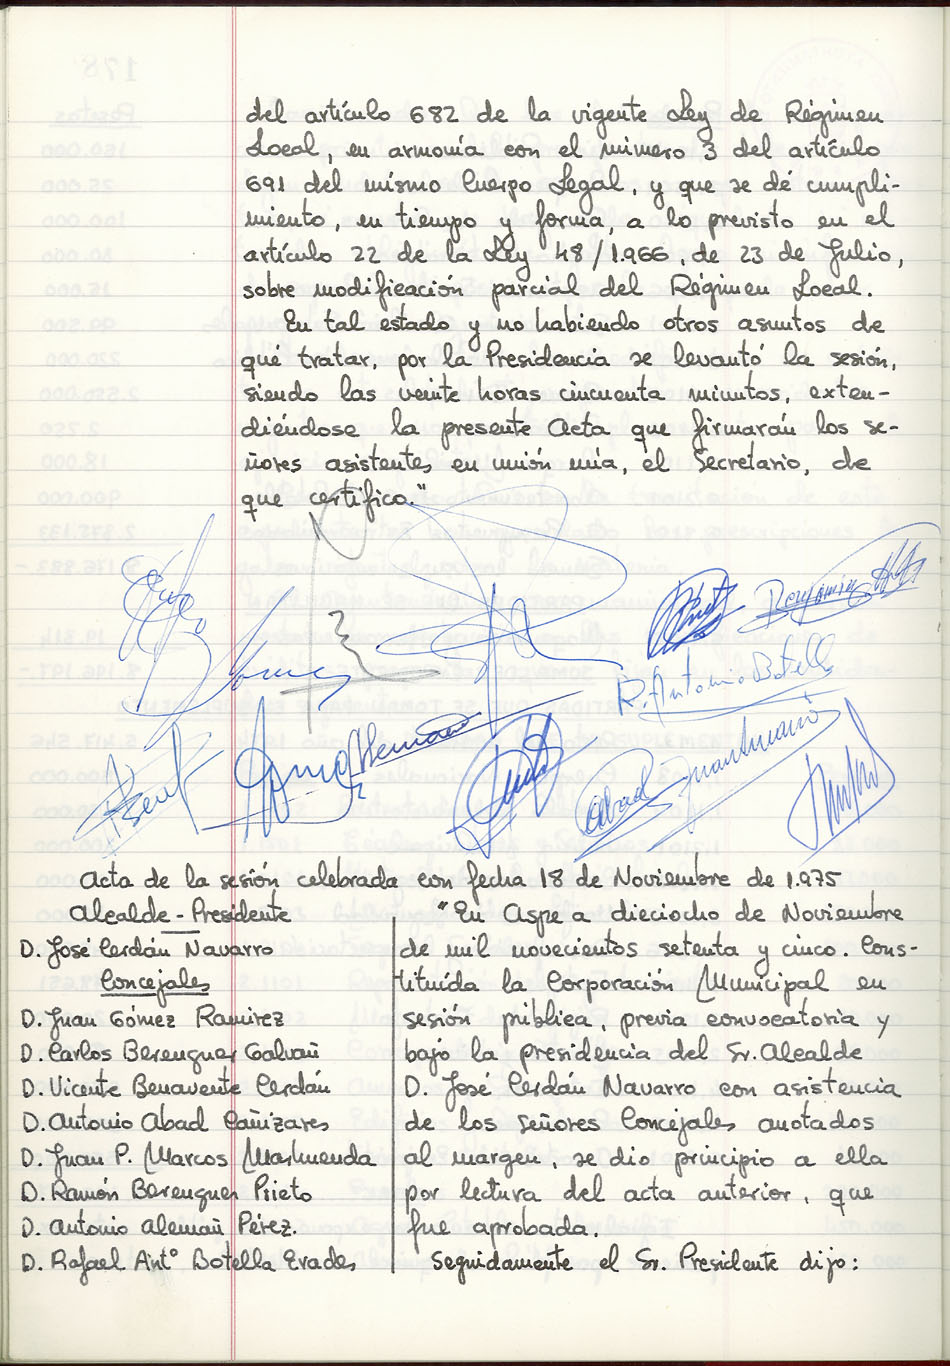 del artículo 682 de la vigente Ley de Régimen
Local, en armonía con el número 3 del artículo
691 del mismo Cuerpo Legal, y que se dé cumpli-
miento, en tiempo y forma, a lo previsto en el
artículo 22 de la Ley 48/1.966, de 23 de Julio,
sobre modificación parcial del Régimen Local.
En tal estado y no habiendo otros asuntos de
qué tratar, por la Presidencia se levantó la sesión,
siendo las veinte horas cincuenta minutos, exten-
diéndose la presente Acta que firmarán los se-
ñores asistentes en unión mía, el Secretario, de
que certifico."
Benjamin
R. Antonio Botella
Aleman
Abad
Acta de la sesión celebrada con fecha 18 de Noviembre de 1.975
Alcalde-Presidente
D. José Cerdán Navarro
Concejales
D. Juan Gómez Ramirez
D. Carlos Berenguer Galvañ
D. Vicente Benavente Cerdán
D. Antonio Abad Cañizares
D. Juan P. Marcos Marhuenda
D. Ramón Berenguer Prieto
D. Antonio Alemañ Pérez.
D. Rafael Antº Botella Erades
"En Aspe a dieciocho de Noviembre
de mil novecientos setenta y cinco. Cons-
tituída la Corporación Municipal en
sesión pública, previa convocatoria y
bajo la presidencia del Sr. Alcalde
D. José Cerdán Navarro con asistencia
de los señores Concejales anotados
al margen, se dio principio a ella
por lectura del acta anterior, que
fue aprobada.
Seguidamente el Sr. Presidente dijo: